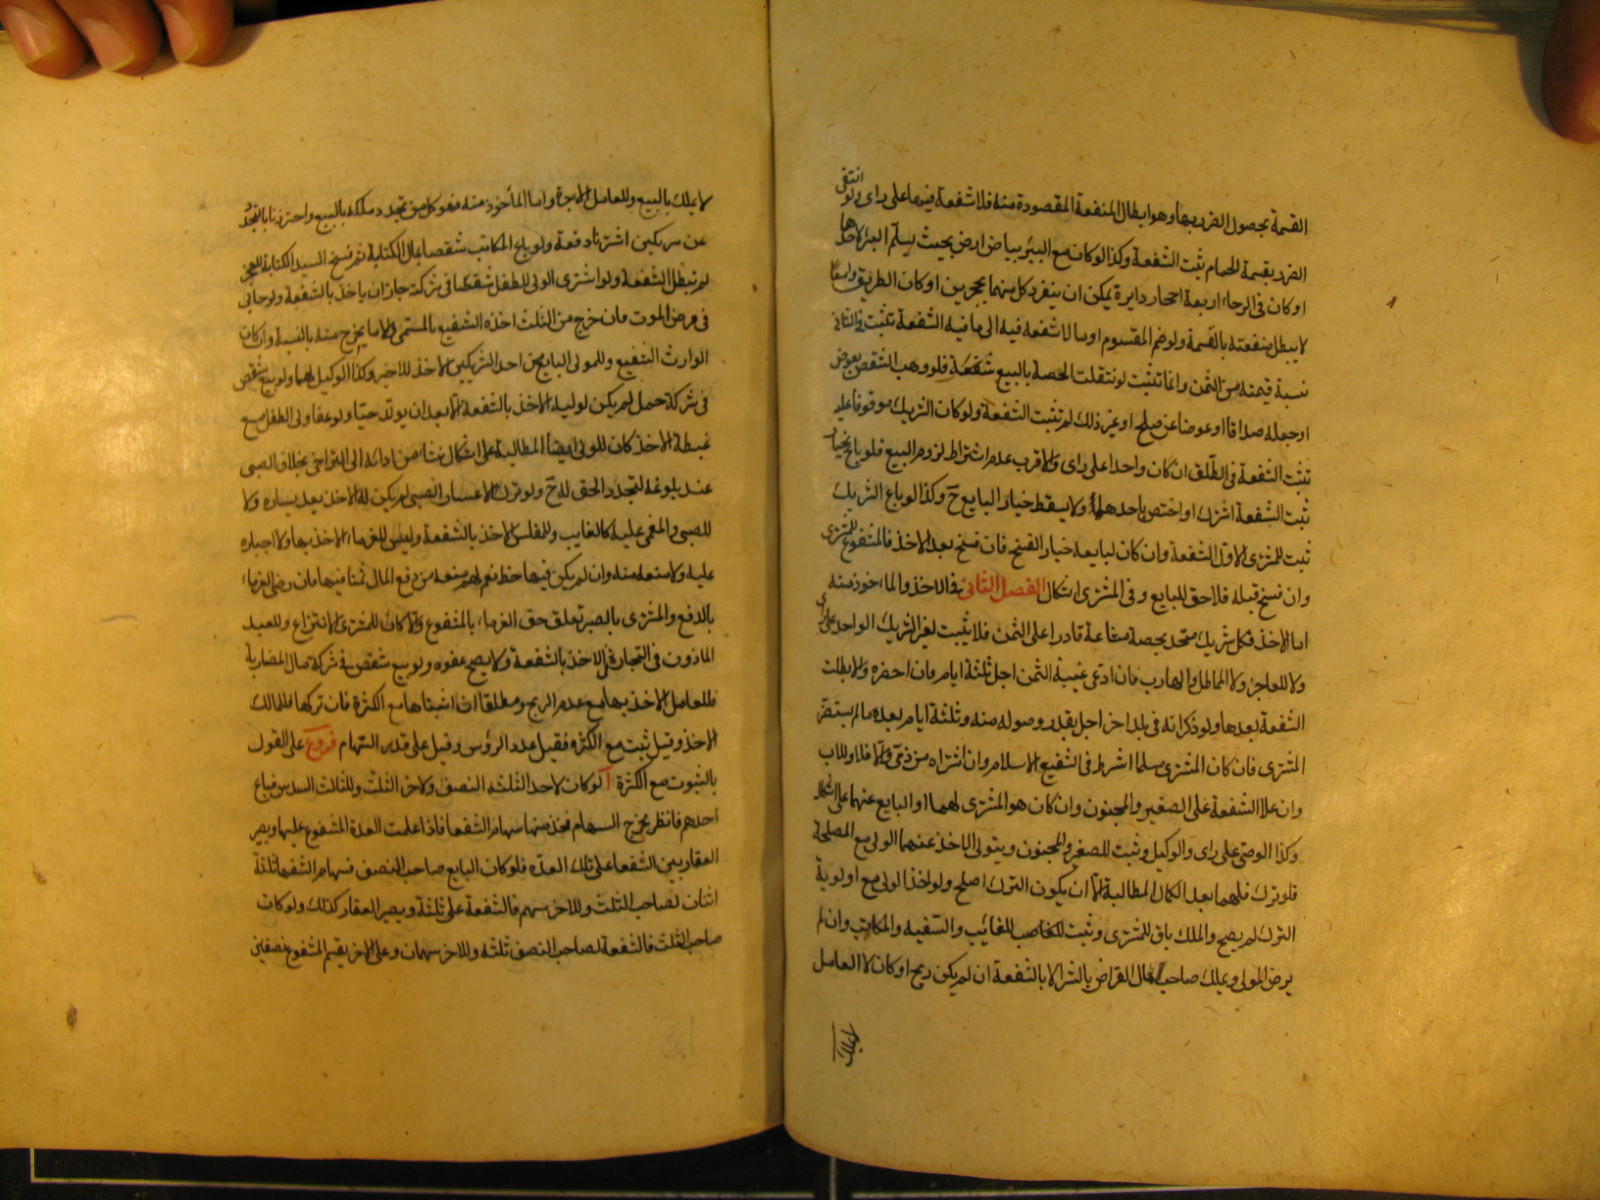 القسمة بحصول الضرر بها وهو ابطال المنفعة المقصودة منه فلا شفعة فيها على راى ولو انتقى
الضرر بقسمة الحمام ثبت الشفعة وكذا لو كان مع البئر بياض ارض بحيث يسلم البئر لاحدها
او كان فى الرحا اربعة احجار دايرة يمكن ان ينفرد كل منهما بحجرين او كان الطريق واسعا
لا يبطل منفعته بالقسمة ولو ضم المقسوم او ما لا شفعة فيه الى ما فيه الشفعة تثبت فى الثانى
نسبة قيمته من الثمن وانما تثبت لو نتقلت الحصة بالبيع فلو وهب الشقص بعوض
او جعله صداقا او عوضا عن صلح او غير ذلك لم تثبت الشفعة ولو كان الشريك موقوفا عليه
تثبت الشفعة فى الطلق ان كان واحدا على راى والاقرب عدم اشتراط لزوم البيع فلو باع بخيار
ثبت الشفعة اشترك او اختص باحدهما ولا يسقط خيار البايع ح وكذا لو باع الشريك
ثبت للمشترى الاول الشفعة وان كان لبايعه خيار الفسخ فان فسخ بعد الاخذ فالمشفوع للمشترى
وان فسخ قبله فلا حق للبايع وفى المشترى اشكال الفصل الثانى فى الاخذ والماخوذ منه
اما الاخذ فكل شريك متحد بحصة مشاعة قادر على الثمن فلا يثبت لغير الشريك الواحد على راى
ولا للعاجز ولا المماطل والهارب فان ادعى غيبة الثمن اجل ثلثة ايام فان احضره والا بطلت
الشفعة بعدها ولو ذكر انه فى بلد اخر اجل بقدر وصوله منه وثلثة ايام بعده ما لم يستضر
المشترى فان كان المشترى مسلما اشرط فى الشفيع الاسلام وان اشتراه من ذمى والا فلا وللاب
وان علا الشفعة على الصغير والمجنون وان كان هو المشترى لهما او البايع عنهما على اشكال
وكذا الوصى على راى والوكيل وثبت للصغير والمجنون ويتولى الاخذ عنهما الولى مع المصلحة
فلو ترك فلهما بعد الكمال المطالبة الا ان يكون الترك اصلح ولو اخذ الولى مع اولوية
الترك لم يصح والملك باق للمشترى وثبت للغائب والسفيه والمكاتب وان لم
يرض المولى ويملك صاحب مال القراض بالشرا لا بالشفعة ان لم يكن ربح او كان لا العامل
لا يملك بالبيع وللعامل الاجرة واما المأخوذ منه فهو كل من تجدد ملكه بالبيع واحترزنا بالتجدد
عن شريكين اشتريا دفعة ولو باع المكاتب شقصا بمال الكتابة ثم فسخ السيد الكتابة للعجز
لم تبطل الشفعة ولو اشترى الولى للطفل شقصا فى شركة جاز ان ياخذ بالشفعة ولو حابى
فى مرض الموت فان خرج من الثلث اخذه الشفيع بالمسمى والا ما يخرج منه بالنسبة وان كان
الوارث الشفيع وللمولى البايع عن احد الشريكين الاخذ للاخر وكذا الوكيل لهما ولو بيع شقص
فى شركة حمل لم يكن لوليه الاخذ بالشفعة الا بعد ان يولد حيا ولو عفا ولى الطفل مع
غبطة الاخذ كان للولى ايضا المطالبة على اشكال نشأ من ادائه الى التراخى بخلاف الصبى
عند بلوغه لتجدد الحق له ح ولو ترك لاعسار الصبى لم يكن له الاخذ بعد يساره ولا
للصبى والمغمى عليه كالغايب وللمفلس الاخذ بالشفعة وليس للغرماء الاخذ بها ولا اجباره
عليه ولا منعه منه وان لم يكن فيها حظ نعم لهم منعه من دفع المال ثمنا فيها فان رضى الغرماء
بالدفع والمشترى بالصبر تعلق حق الغرماء بالمشفوع والا كان للمشترى الانتزاع وللعبد
الماذون فى التجارة الاخذ بالشفعة ولا يصح عفوه ولو بيع شقص فى شركة مال المضاربة
فللعامل الاخذ بها مع عدم الربح ومطلقا ان اثبتناها مع الكثرة فان تركها فللمالك
الاخذ وقيل ثبت مع الكثرة فقيل عدد الرؤس وقيل على قدر السهام فروع على القول
بالثبوت مع الكثرة ا لو كان لاحد الثلثة النصف ولاخر الثلث وللثالث السدس فباع
احدهم فانظر مخرج السهام فخذ منها سهام الشفعا فاذا علمت العدة المشفوع عليها ويصير
العقار بين الشفعا على تلك العدة فلو كان البايع صاحب النصف فسهام الشفعا ثلثة
اثنان لصاحب الثلث وللاخر سهم فالشفعة على ثلثة ويصير العقار كذلك ولو كان
صاحب الثلث فالشفعة لصاحب النصف ثلثة وللاخر سهمان وعلى الاخر يقسم المشفوع نصفين